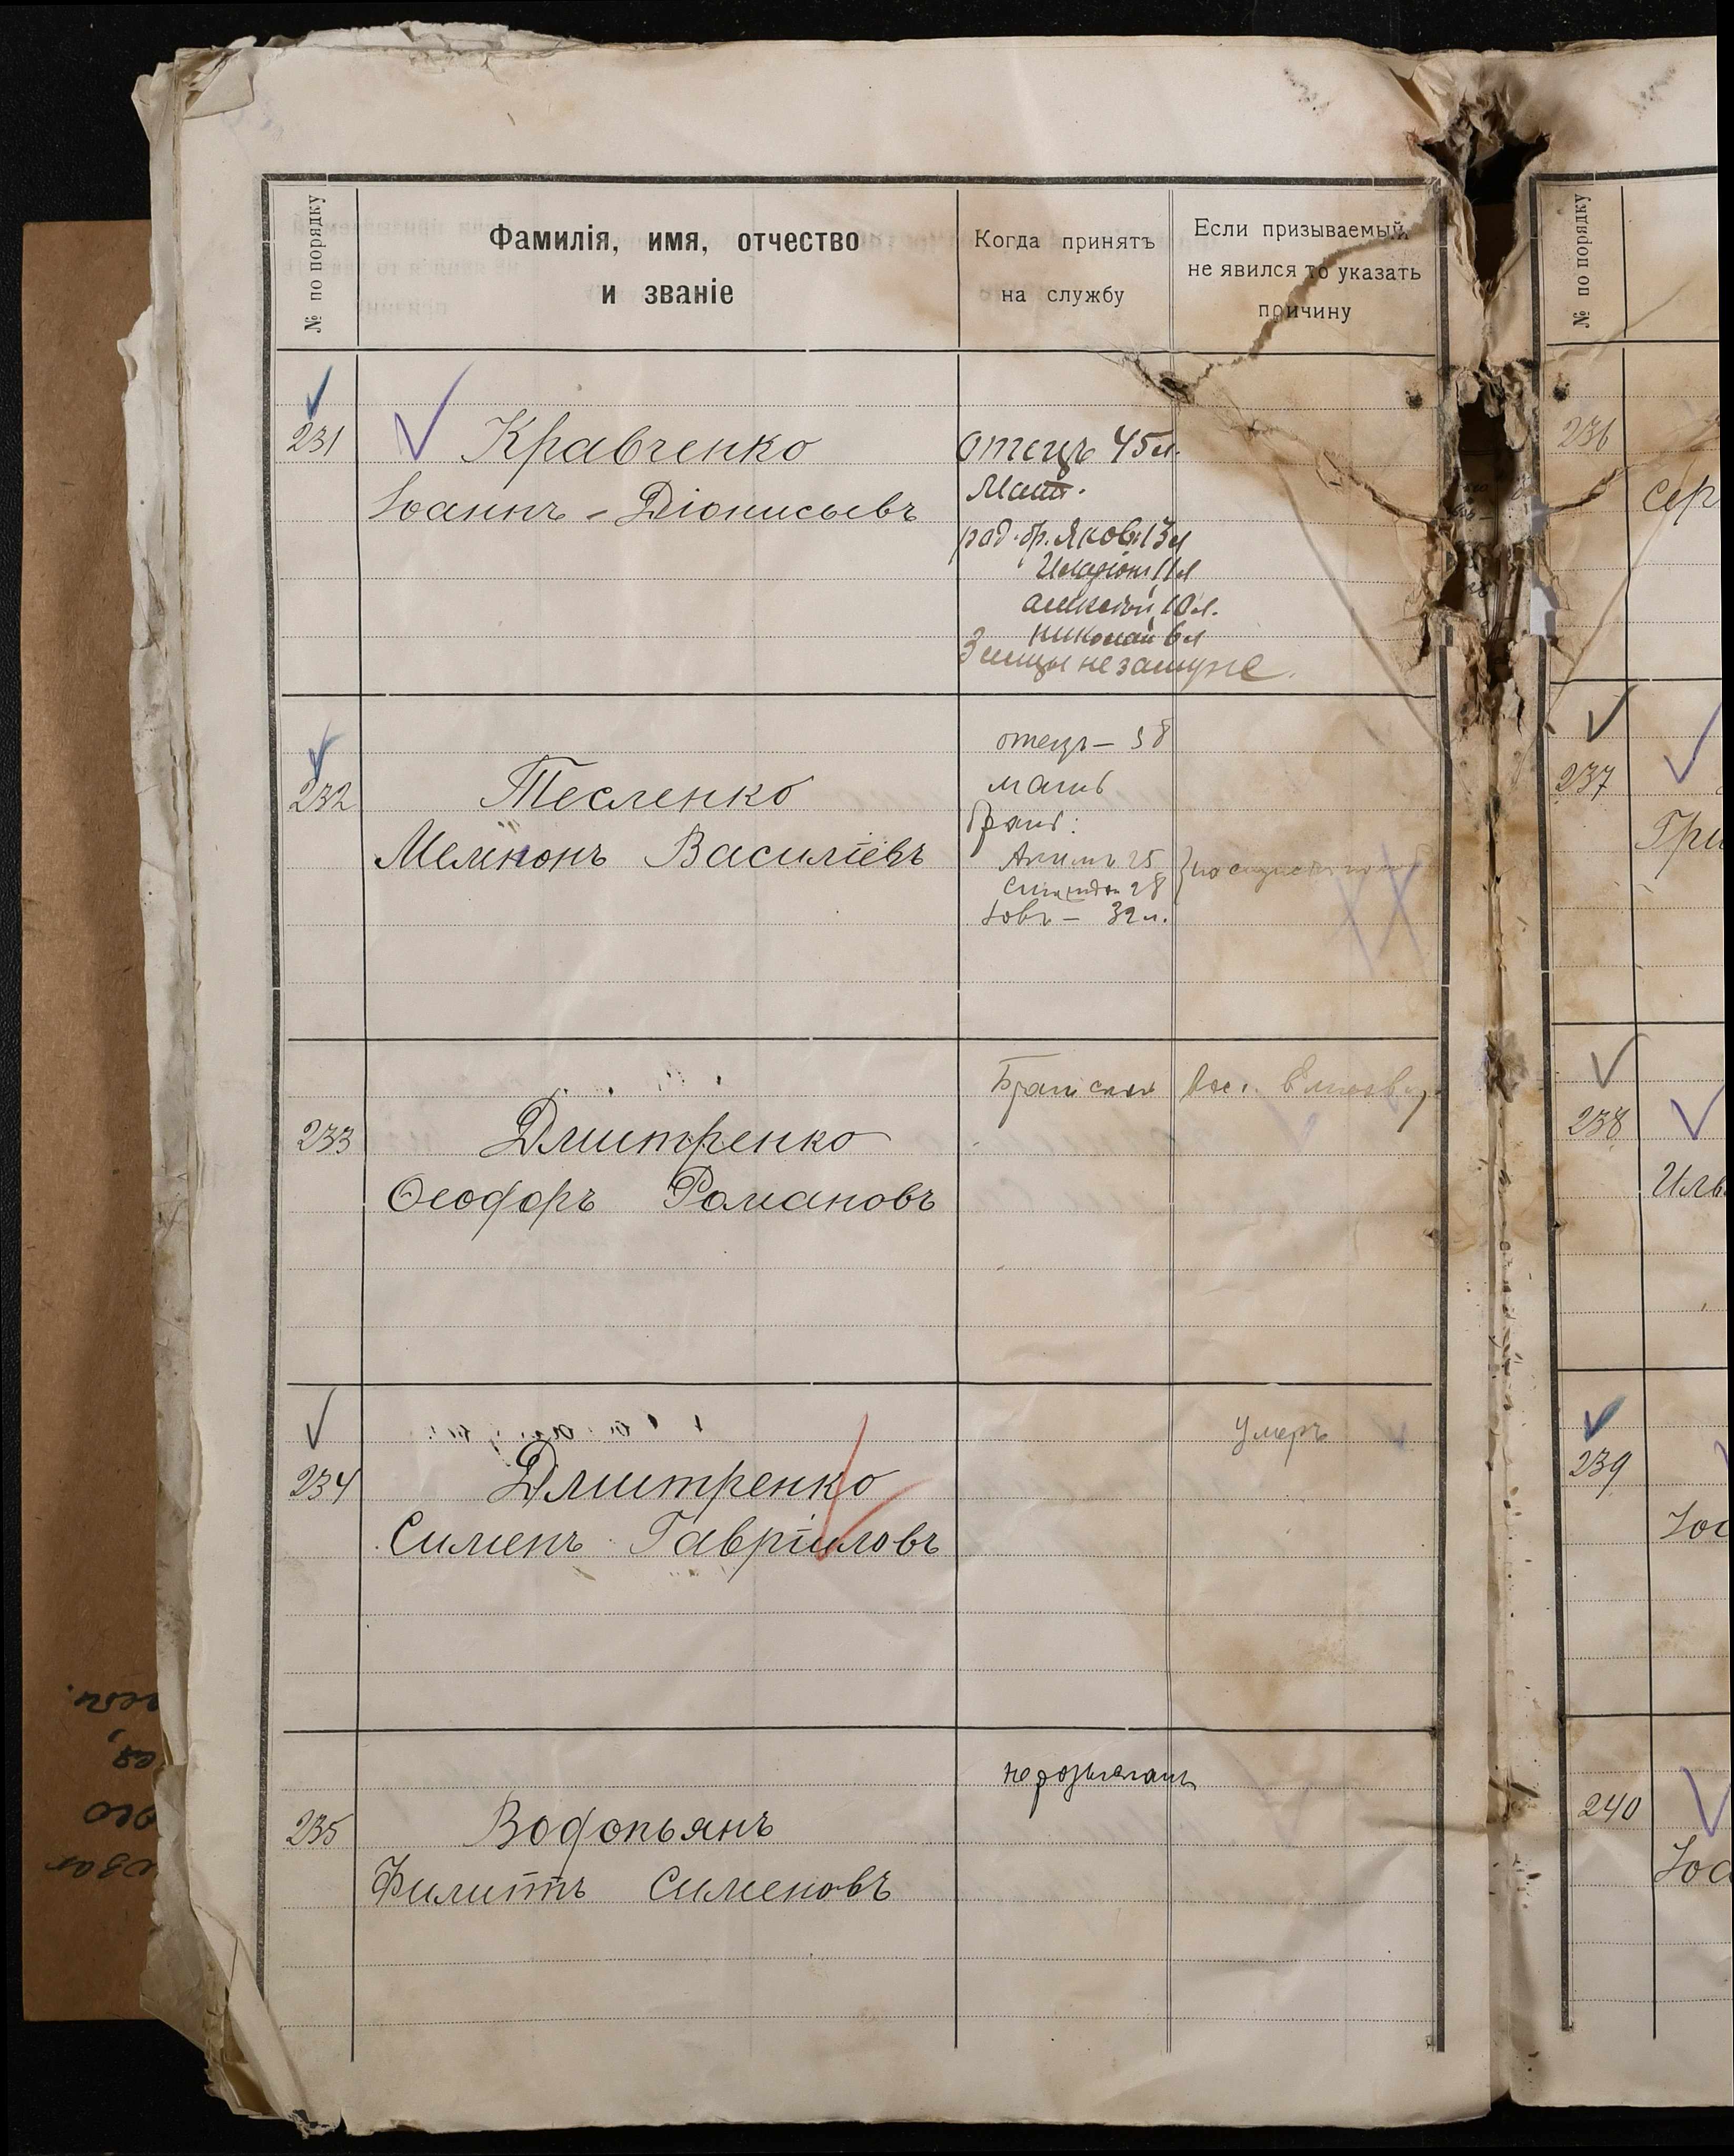 № по порядку
Фамилія, имя, отчество
и званіе
Когда принятъ
на службу
Если призываемый
не явился то указать
причину
231
Кравченко
Іоаннъ - Діонисьевъ
отецъ 45 л.
Мат.
род. бр. Яковъ 13 л
Иларіонъ 11 л
алексѣй 10 л.
николай 6 л
3 сестры не замуже.
232
Тесленко
Мемнонъ Василіевъ
отецъ — 58
мать
Брат:
Акимъ 25
28
Іовъ — 32 л.
на службѣ
233
Дмитренко
Ѳеодоръ Романовъ
Братск
234
Дмитренко
Сименъ Гавріиловъ
умеръ
235
Водопьянъ
Филиппъ Сименовъ
не розысканъ
№ по порядку
236
Сер
237
Гри
238
Иль
239
Іос
240
Іоа